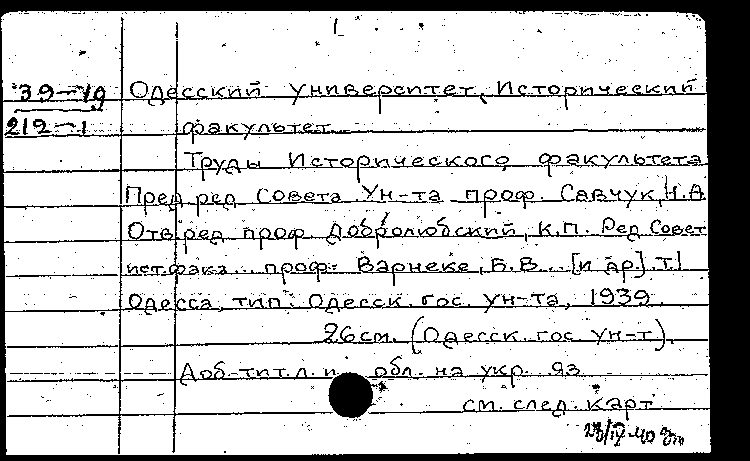 1
39-19 Одесский университет, Исторический
212-1 факультет.
Труды Исторического факультета
Пред. ред. Совета Ун-та проф. Савчук, Н.А
Отв. ред. проф. Добролюбский, К.П. Ред. Совет
ист. фака.. проф. Варнеке, Б.В... [и др.]. Т.1
Одесса, тип. Одесск. гос. ун-та, 1939.
26см. (Одесск. гос. ун-т).
Доб. тит. л. и обл. на укр. яз
см. след. карт